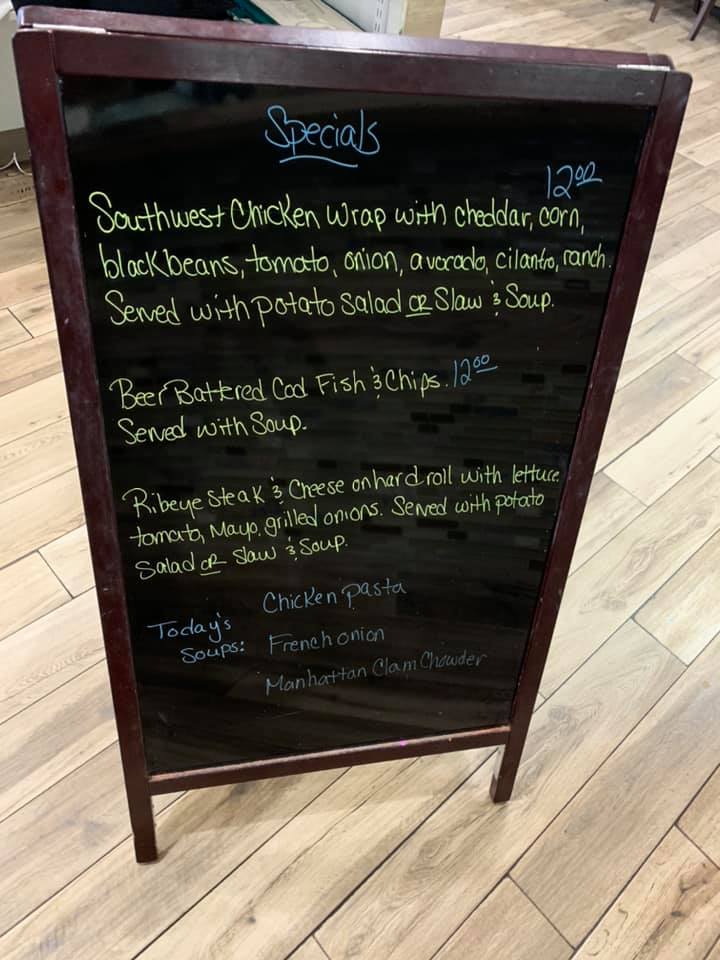 Specials
12.00
Southwest Chicken Wrap with cheddar, corn,
black beans, tomato, onion, avocado, cilantro, ranch.
Served with potato Salad or Slaw & Soup.
Beer Battered Cod Fish & Chips. 12.00
Served with Soup.
Ribeye Steak & Cheese on hard roll with lettuce,
tomato, Mayo, grilled onions. Served with potato
Salad or Slaw & Soup.
Chicken pasta
Today's
Soups: French onion
Manhattan Clam Chowder